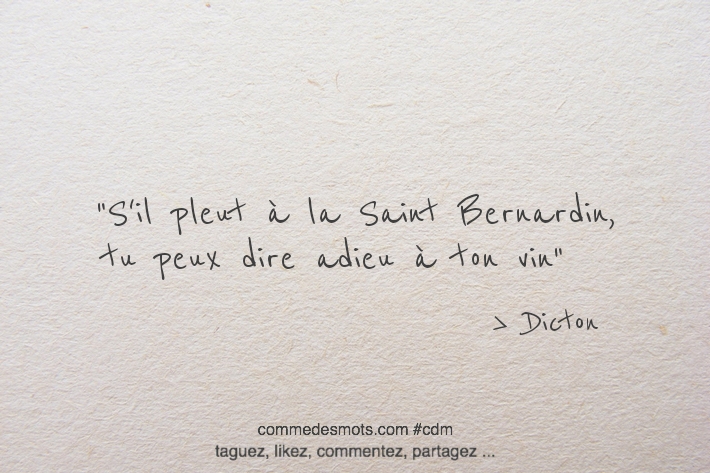 "S'il pleut à la Saint Bernardin,
tu peux dire adieu à ton vin"
> Dicton
commedesmots.com #cdm
taguez, likez, commentez, partagez ...